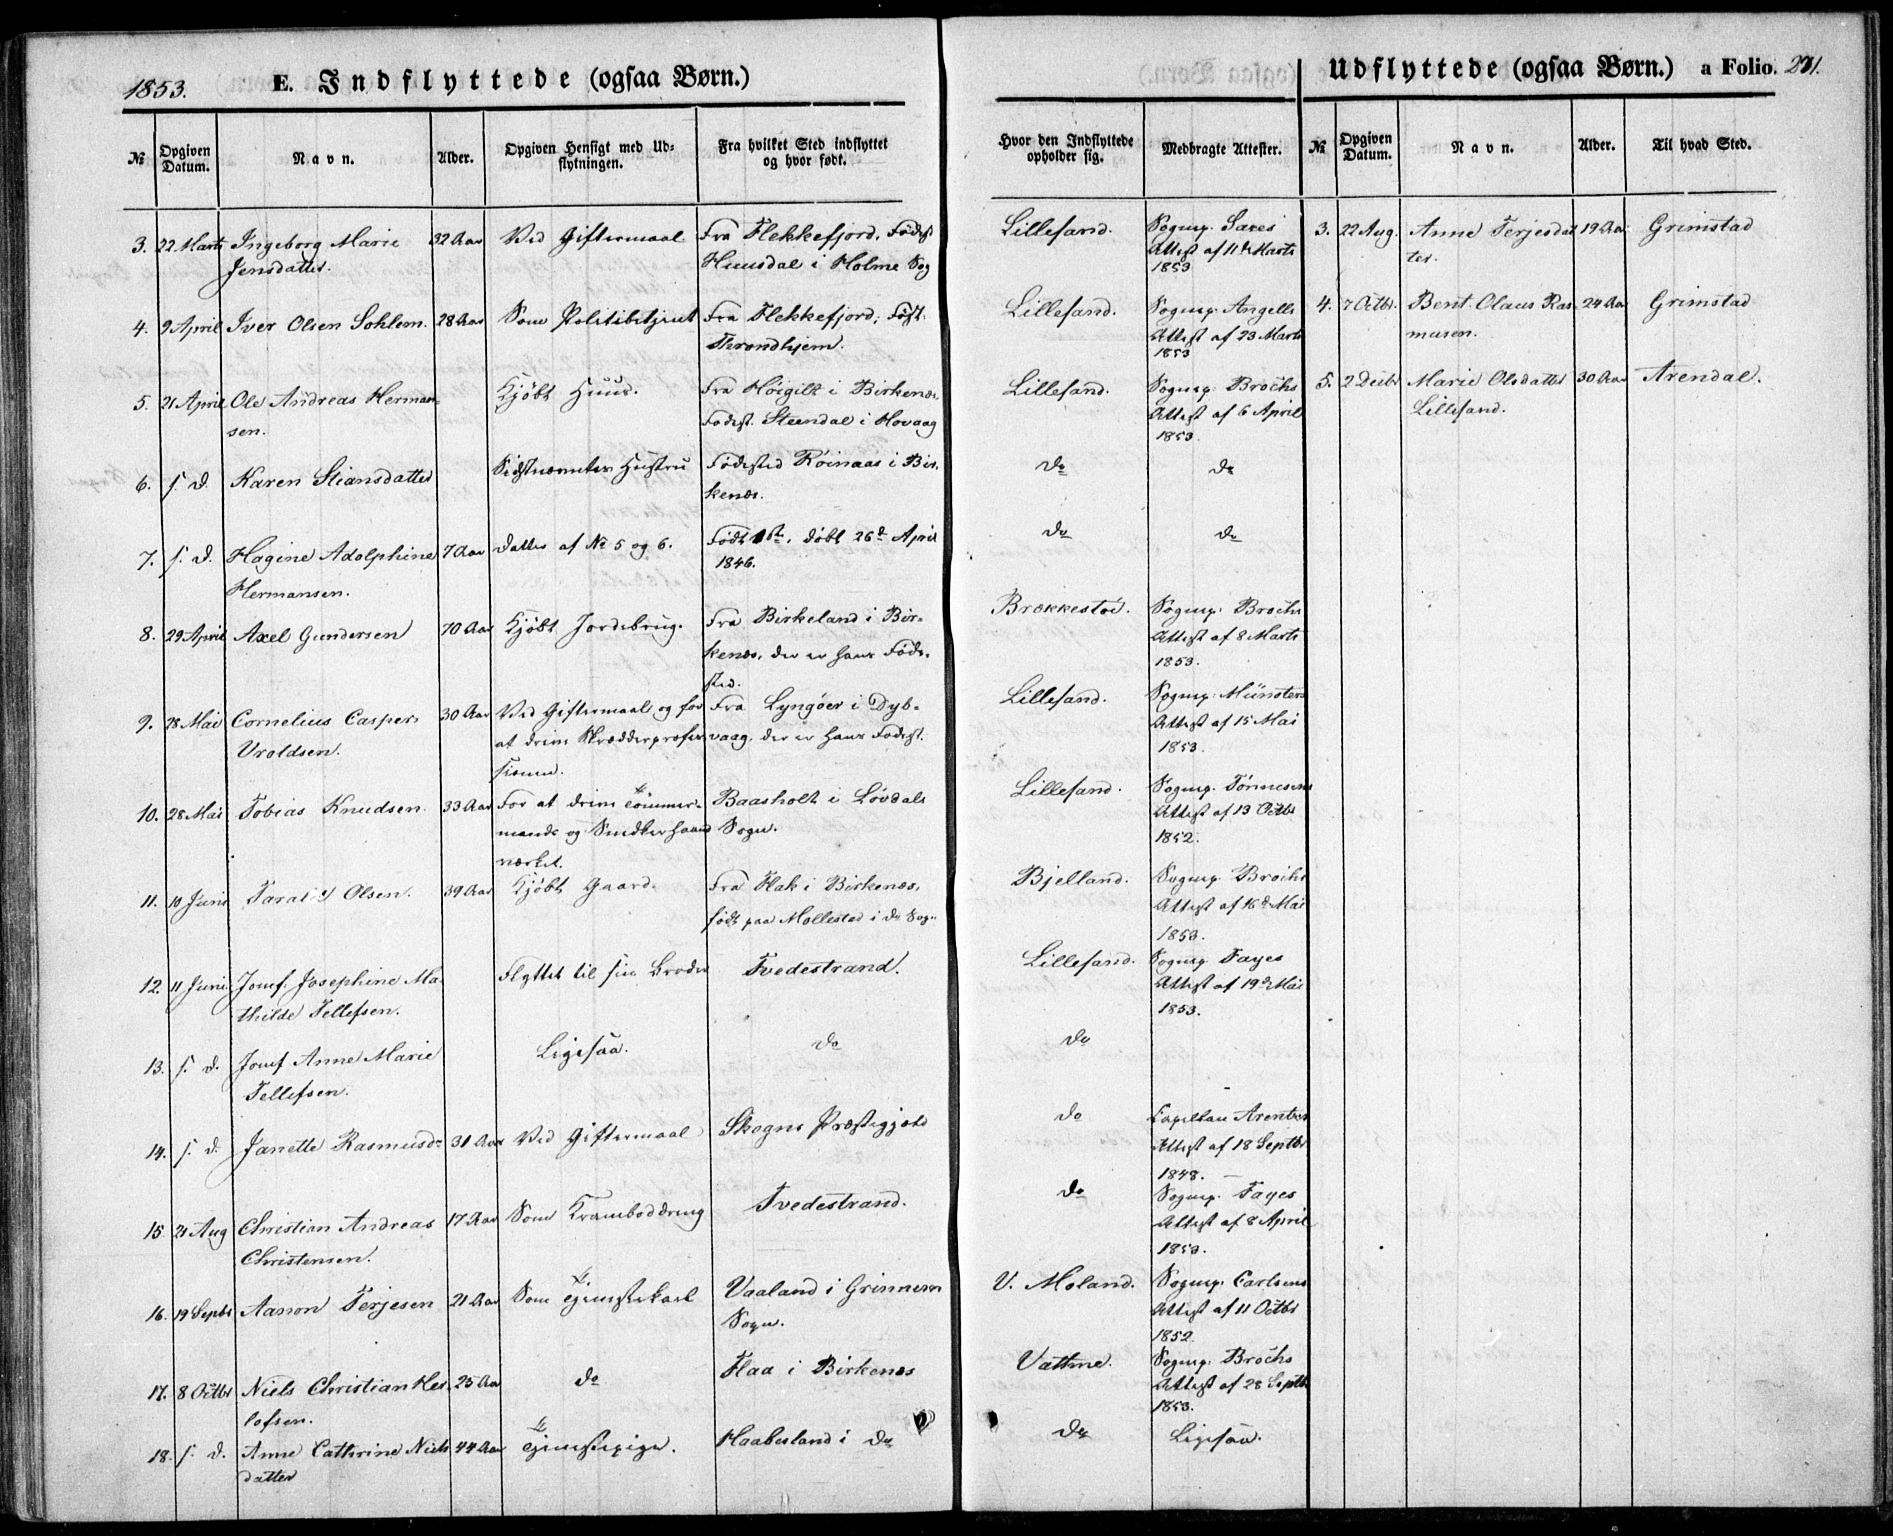 1853.
E. Indflyttede (ogsaa Børn.)
№ Opgiven Datum. Navn. Alder. Opgiven Hensigt med Udflytningen. Fra hvilket Sted indflyttet og hvor født.
3. 22 Marts Ingeborg Marie 32 Aar Ved Giftermaal Fra Flekkefjord, Fødest
Jensdatter. Huusdal i Holme Sog
4. 9 April Iver Olsen Soklem. 28 Aar Som Politibetjent Fra Flekkefjord, Fødst.
Throndhjem.
5. 21 April Ole Andreas Herman- Kjøbt Huus. Fra Høigilt i Birkenæs,
sen. Fødest. Steendal i Høvaag
6. s. D. Karen Stiansdatter Sidstnævntes Hustru Fødested Røinaas i Bir-
kenæs.
7. s. D. Hagine Adolphine 7 Aar Datter af No 5 og 6. Født 1ste, døbt 26d April
Hermansen. 1846.
8. 29 April Axel Gundersen 70 Aar Kjøbt Jordebrug. Fra Birkeland i Bir-
kenæs, der er hans Føde-
sted.
9. 28 Mai Cornelius Casper 30 Aar Ved Giftermaal og for Fra Lyngøer i Dyb-
Uroldsen. at drive Skrædderprofes- vaag, der er hans Fødest.
sionen.
10. 28 Mai Tobias Knudsen. 33 Aar For at drive Tömmer- Baasholt i Løvdals
mands og Snedkerhaand Sogn.
værket.
11. 10 Juni Olsen. 39 Aar Kjøbt Gaard. Fra Flak i Birkenæs,
født paa Mollestad i do Sogn
12. 11 Juni Jomf. Josephine Ma- Flyttet til sin Broder Tvedestrand.
thilde Tellefsen.
13. s. d. Jomf Anne Marie Ligesaa. do
Tellefsen.
14. s. d. Janette Rasmusdr 31 Aar Ved Giftermaal Skogns Præstegjeld
15. 21 Aug Christian Andreas 17 Aar Som Krambeddreng Tvedestrand.
Christensen.
16. 19 Septbr Aanon Terjesen 21 Aar Som Tjenestekarl Vaaland i
Sogn.
17. 8 Octbr Niels Christian Hel- 25 Aar do Flaa i Birkenæs
lofsen.
18. s. D. Anne Cathrine Niels 44 Aar Tjenestepige. Haabesland i do
datter
Udflyttede (ogsaa Børn.) a Folio. 271.
Hvor den Indflyttede opholder sig. Medbragte Attester. № Opgiven Datum. Navn. Alder. Til hvad Sted.
Lillesand. Sognep. Saxes 3. 22 Aug. Anne Terjesdat 19 Aar Grimstad
Attest af 11te Marts ter.
1853
Lillesand. Sognep. Angells 4. 7 Octbr. Bent Olaus Ras- 24 Aar Grimstad
Attest af 23 Marts musen.
1853
Lillesand. Sognep. Brochs 5. 2 Decbr Marie Olsdatter 30 Aar Arendal.
Attest af 6 April Lillesand.
1853.
do do
do do
Brækkestøe. Sognep. Brochs
Attest af 8 Marts
1853.
Lillesand. Sognep. Münsters
Attest af 15 Mai
1853.
Lillesand. Sognep. Tønnesens
Attest af 13 Octbr
1852.
Bjelland. Sognep. Brochs
Attest af 16d Mai
1853.
Lillesand. Sognep Fayes
Attest af 19d Mai
1853.
do
do Capellan Arentzes
Attest af 18 Septbr
1848. —
do Sognep. Fayes
Attest af 8 April
1853.
V. Moland. Sognep. Carlsens
Attest af 11 Octbr
1852.
Vattne. Sognep. Brochs
Attest af 28 Septbr
1853.
do Ligesaa.